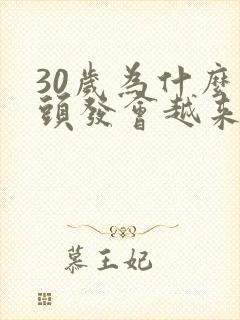 30歲為什麼
頭發會越来
慕王妃